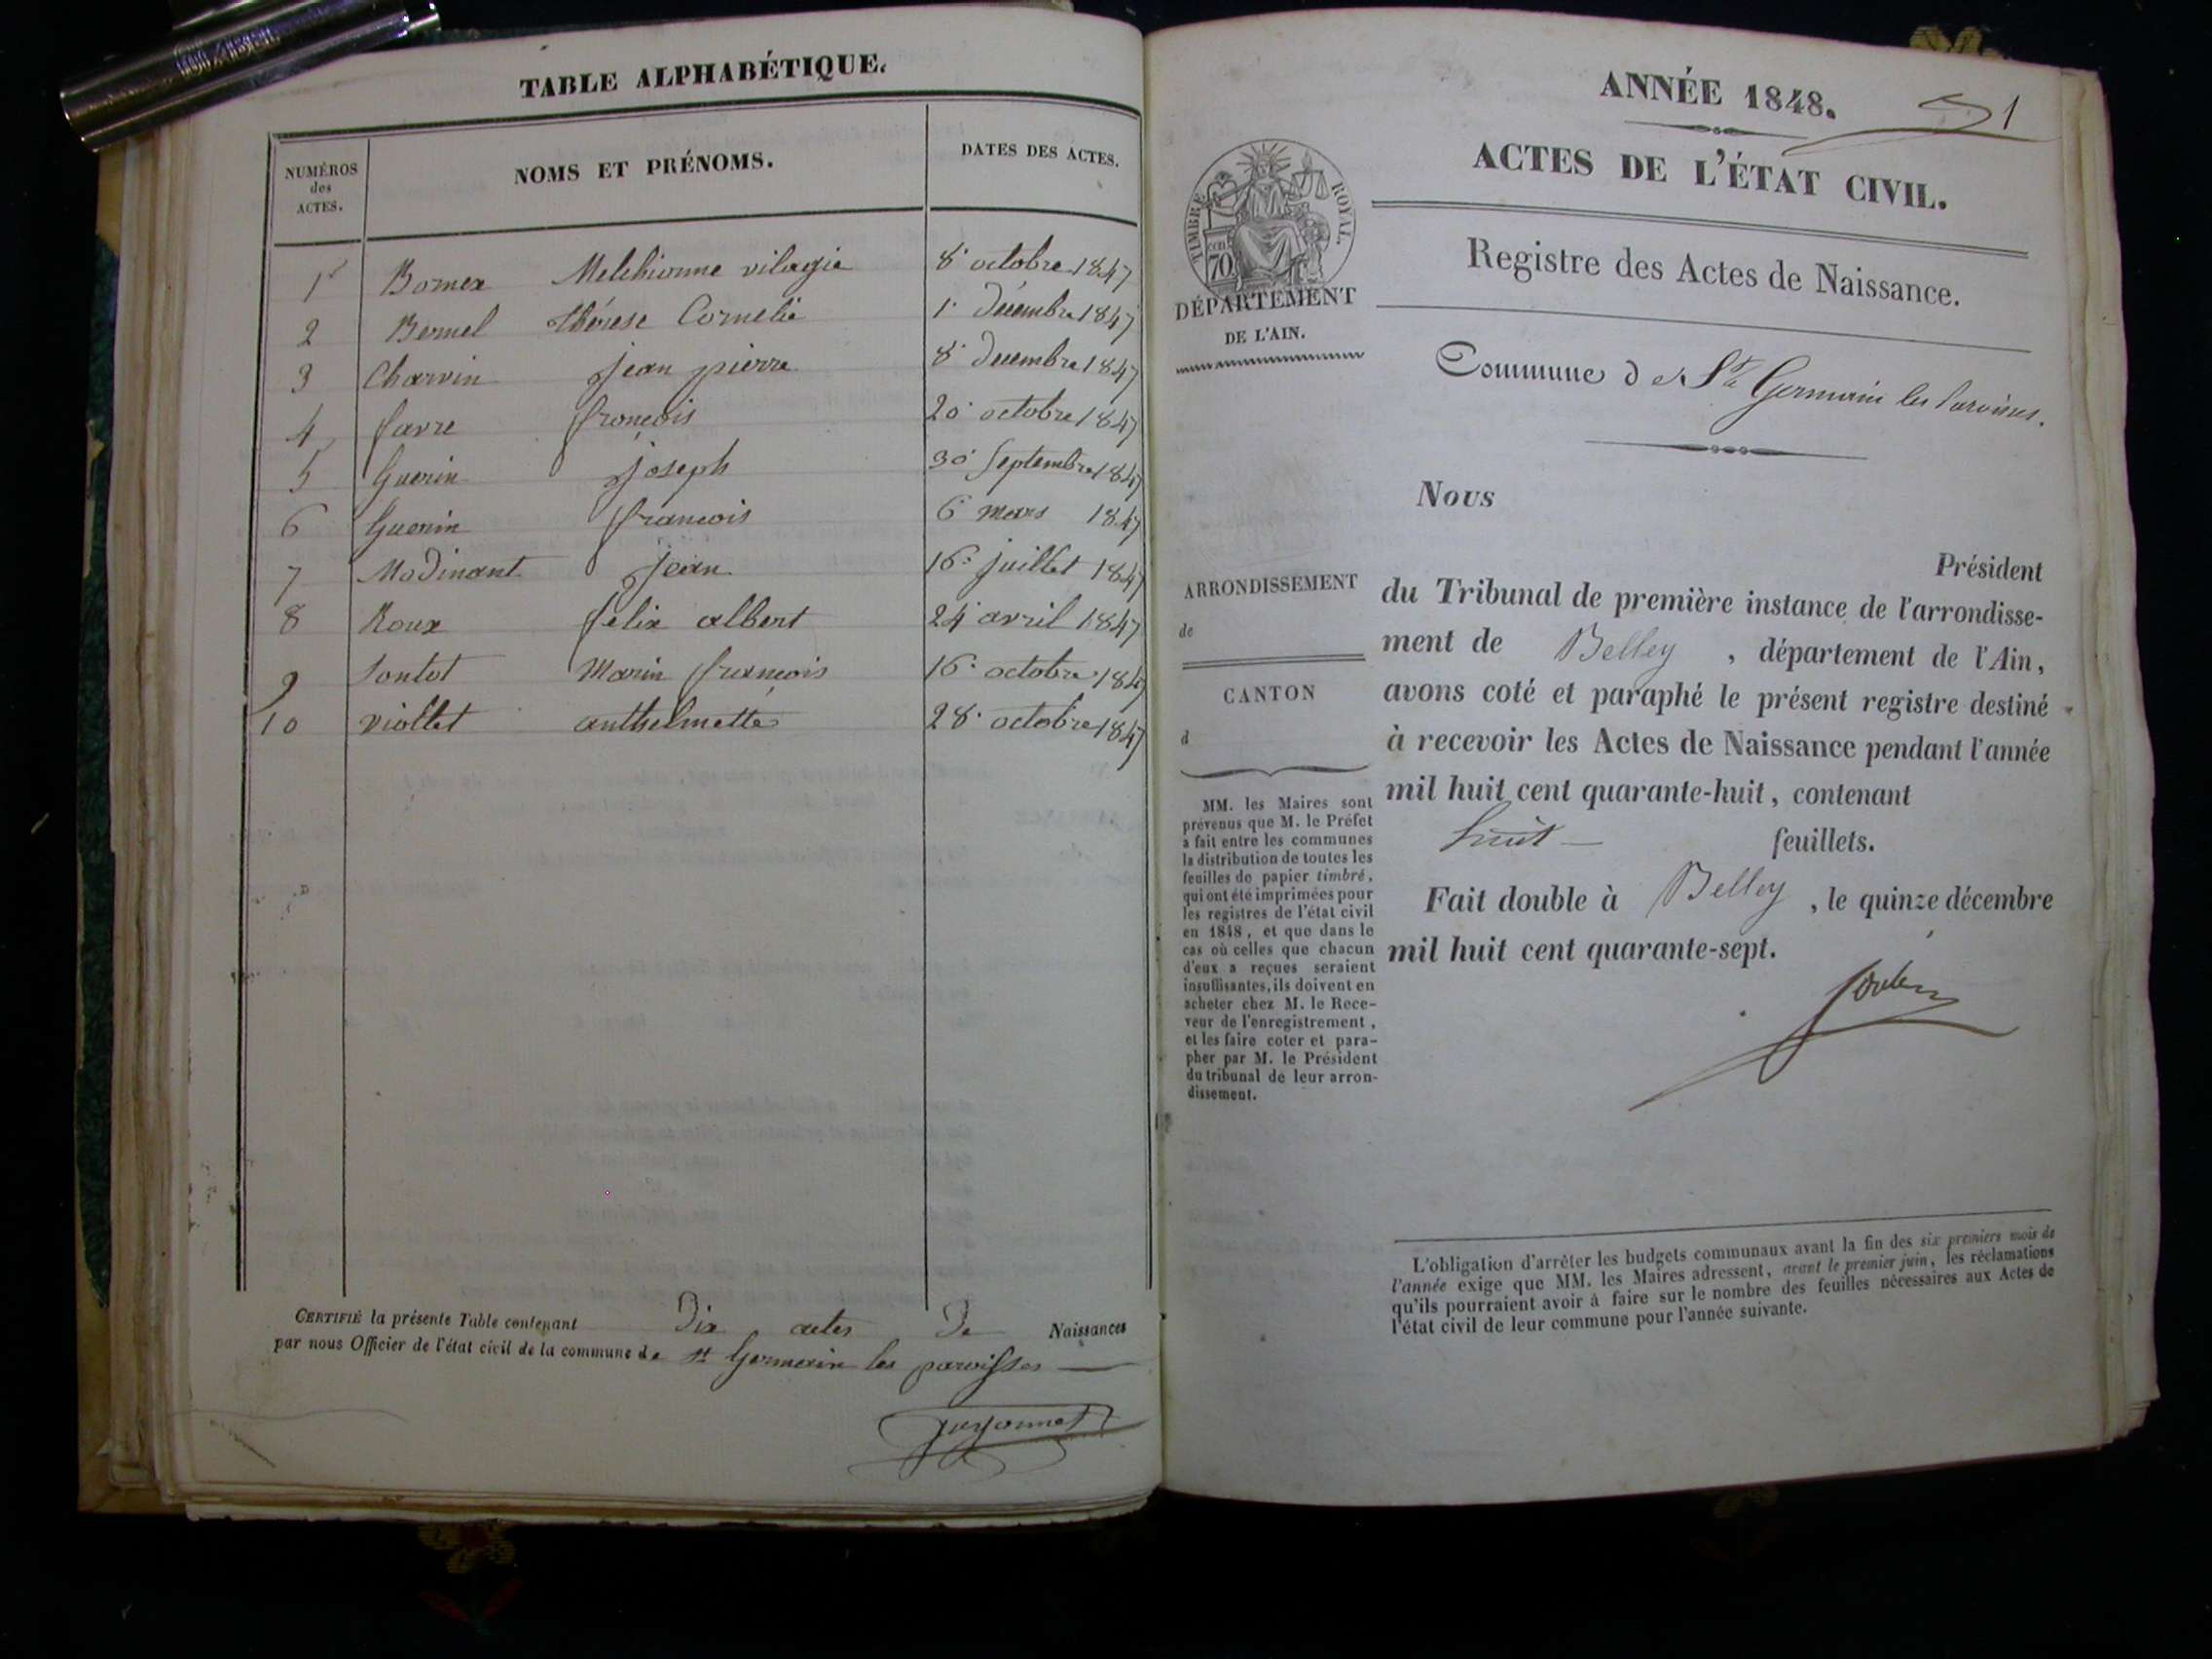 TABLE ALPHABÉTIQUE.
NUMÉROS
des
ACTES.
NOMS ET PRÉNOMS.
DATES DES ACTES.
1 Bornex Melchionne vilagie 8 octobre 1847
2 Bernel thérese Cornelie 1 Décembre 1847
3 Charvin jean pierre 8 Decembre 1847
4 favre françois 20 octobre 1847
5 Guerin joseph 30 Septembre 1847
6 Guerin françois 6 mars 1847
7 Modinant jean 16 juillet 1847
8 Roux felix albert 24 avril 1847
9 Sontot Marin françois 16 octobre 1847
10 viollet anthelmette 28 octobre 1847
CERTIFIÉ la présente Table contenant Dix actes De Naissances
par nous Officier de l'état civil de la commune de St Germain les paroisses
ANNÉE 1848.
1
ACTES DE L'ÉTAT CIVIL.
TIMBRE ROYAL.
cent
70
DÉPARTEMENT
DE L'AIN.
Registre des Actes de Naissance.
Commune de St Germain les Paroisses.
Nous
Président
ARRONDISSEMENT
de
CANTON
d
du Tribunal de première instance de l'arrondisse-
ment de Belley , département de l'Ain,
avons coté et paraphé le présent registre destiné
à recevoir les Actes de Naissance pendant l'année
mil huit cent quarante-huit, contenant
huit feuillets.
Fait double à Belley , le quinze décembre
mil huit cent quarante-sept.
MM. les Maires sont
prévenus que M. le Préfet
a fait entre les communes
la distribution de toutes les
feuilles de papier timbré,
qui ont été imprimées pour
les registres de l'état civil
en 1848, et que dans le
cas où celles que chacun
d'eux a reçues seraient
insuffisantes, ils doivent en
acheter chez M. le Rece-
veur de l'enregistrement,
et les faire coter et para-
pher par M. le Président
du tribunal de leur arron-
dissement.
L'obligation d'arrêter les budgets communaux avant la fin des six premiers mois de
l'année exige que MM. les Maires adressent, avant le premier juin, les réclamations
qu'ils pourraient avoir à faire sur le nombre des feuilles nécessaires aux Actes de
l'état civil de leur commune pour l'année suivante.